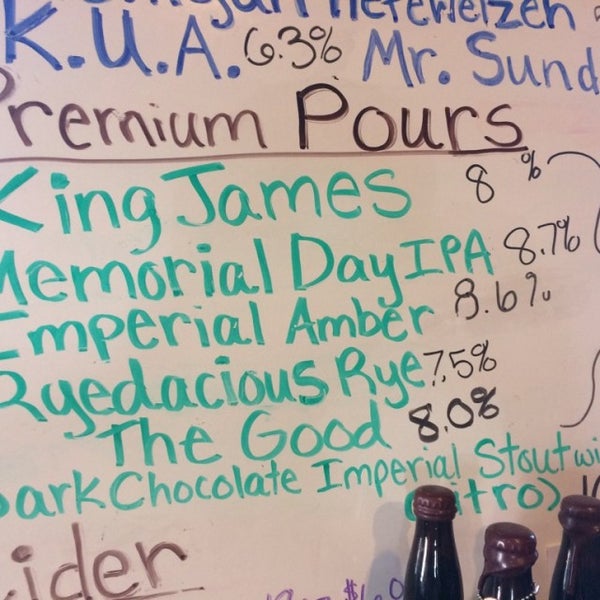 Hefeweizen
K.U.A. 6.3% Mr. Sund
Premium Pours
King James 8%
Memorial Day IPA 8.7%
Imperial Amber 8.6%
Ryedacious Rye 7.5%
The Good 8.0%
Dark Chocolate Imperial Stout wi
nitro)
Cider